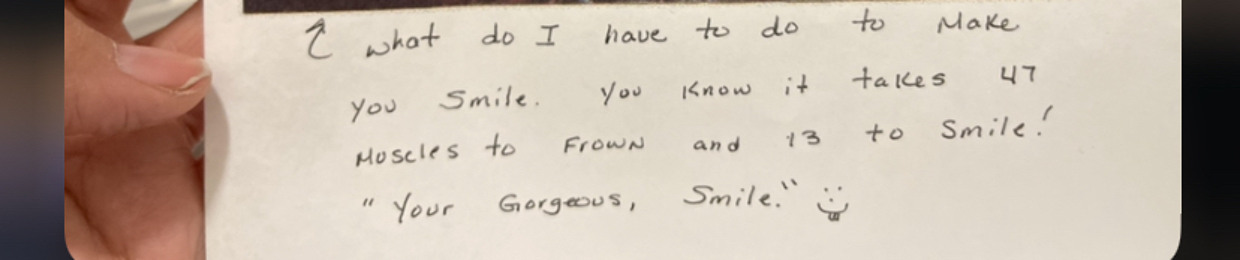 what do I have to do to Make
you Smile. You Know it takes 47
Muscles to Frown and 13 to Smile!
"Your Gorgeous, Smile."